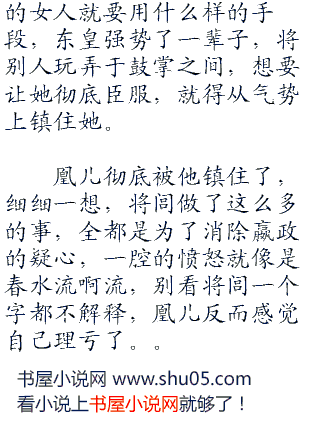 的女人就要用什么样的手
段，东皇强势了一辈子，将
别人玩弄于鼓掌之间，想要
让她彻底臣服，就得从气势
上镇住她。
凰儿彻底被他镇住了，
细细一想，将闾做了这么多
的事，全都是为了消除嬴政
的疑心，一腔的愤怒就像是
春水流啊流，别看将闾一个
字都不解释，凰儿反而感觉
自己理亏了。。
书屋小说网 www.shu05.com
看小说上书屋小说网就够了！